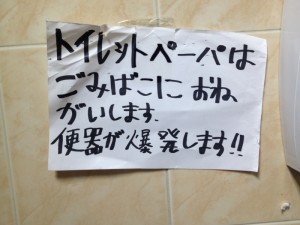 トイレットペーパは
ごみばこに おね
がいします.
便器が爆発します!!